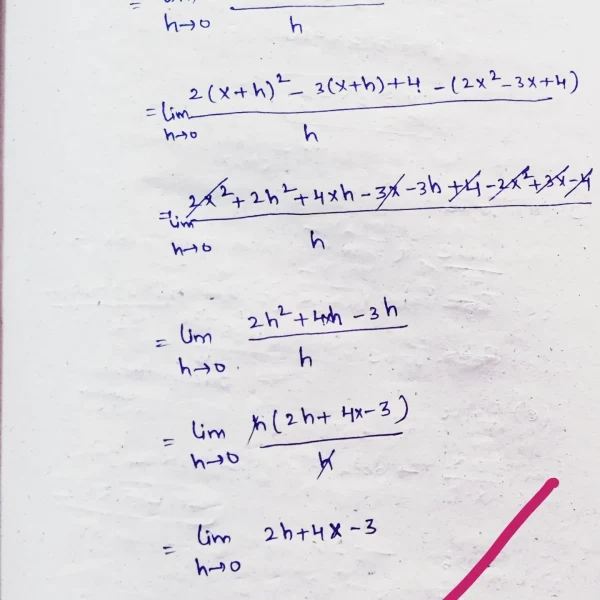 = h→0 h
= lim h→0 2(x+h)² - 3(x+h)+4 - (2x²-3x+4) / h
= lim h→0 2x² + 2h² + 4xh - 3x - 3h + 4 - 2x² + 3x - 4 / h
= lim h→0 2h² + 4xh - 3h / h
= lim h→0 h(2h + 4x - 3) / h
= lim h→0 2h + 4x - 3